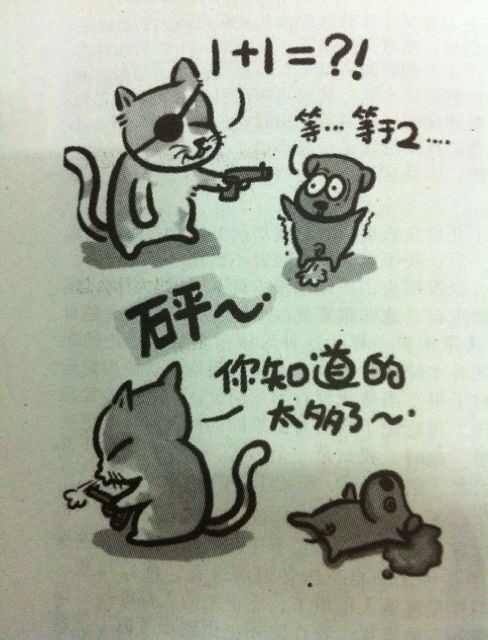 1+1=?!
等… 等于2….
砰～·
你知道的
太多了～·